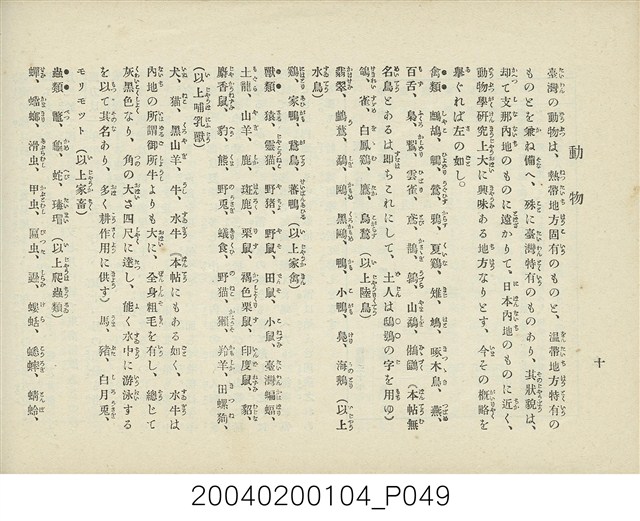 動物
十
臺灣の動物は、熱帶地方固有のものと、溫帶地方特有の
ものとを兼ね備へ、殊に臺灣特有のものあり、其狀貌は、
却て支那內地のものに遠かりて、日本內地のものに近く、
動物學硏究上大に興味ある地方なりとす、今その槪略を
擧ぐれば左の如し。
禽類 鷓鴣、鶉、鶯、鴉、夏鷄、雉、鳩、啄木鳥、燕、
百舌、梟、鷲、雲雀、鳶、鵲、鶴、山鷸、鸺鶹(本帖無
名鳥とあるは卽ちこれにして、土人は鴟鴞の字を用ゆ)
鴿、雀、白鳳鷄、鷹、烏鶖、(以上陸鳥)
翡翠、鸕鷀、鷸、鷗、黑鷗、鴨、小鴨、鳧、海鵝(以上
水鳥)
鷄、家鴨、鵞鳥、蕃鴨(以上家禽)
獸類 猿、靈猫、野猪、野鼠、田鼠、小鼠、臺灣蝙蝠、
土龍、山羊、鹿、斑鹿、栗鼠、褐色栗鼠、印度鼠、貂、
麝香鼠、豹、熊、野兎、蟻食、野猫、獺、羚羊、田螺狗、
(以上哺乳獸)
犬、猫、黑山羊、牛、水牛(本帖にもある如く、水牛は
內地の所謂御所牛よりも大に、全身粗毛を有し、總じて
灰黑色なり、角の大さ四五尺に達し、能く水中に游泳する
を以て其名あり、多く耕作用に供す)馬、豬、白月兎、
モリモツト(以上家畜)
蟲類 鼈、龜、蛇、瑇瑁(以上爬蟲類)
蟬、蟷螂、滑虫、甲虫、虱、螻蛄、蟋蟀、蜻蛉、
20040200104_P049